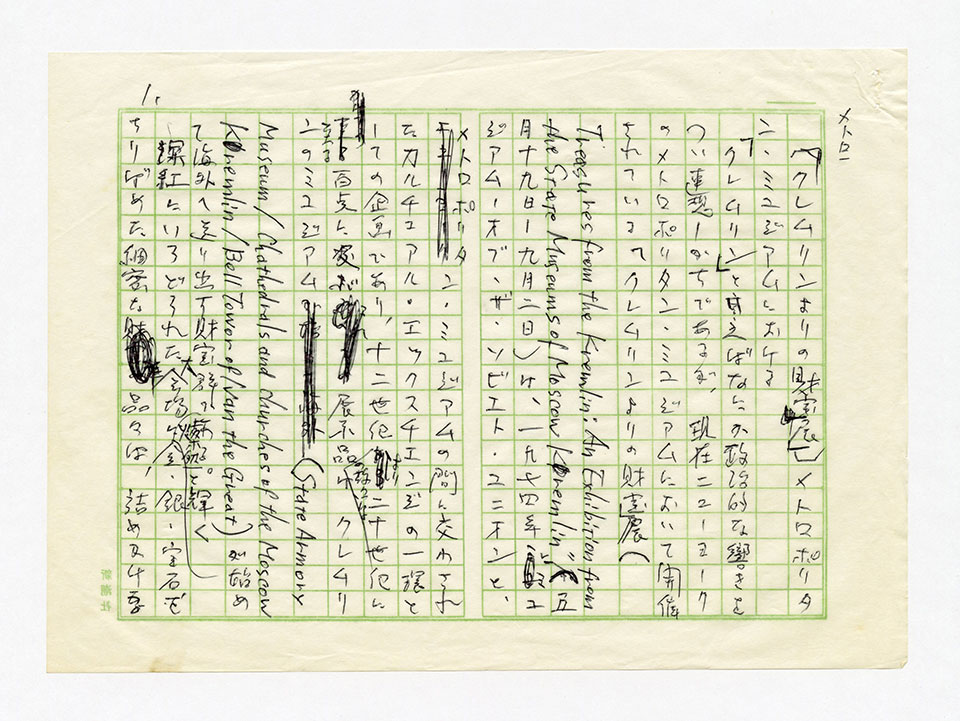 メトロ
「クレムリンよりの財宝展」メトロポリタ
ン・ミュジアムにおける
「クレムリン」と言えばなにか政治的な響きを
つい連想しがちであるが、現在ニューヨーク
のメトロポリタン・ミュジアムにおいて開催
されている「クレムリンよりの財宝展(
Treasures from the Kremlin: An Exhibition from
the State Museums of Moscow Kremlin"(五
月十九日ー九月二日)は、一九七四年にミュ
ジアム・オブ・ザ・ソビエト・ユニオンと、
メトロポリタン・ミュジアムの間に交わされ
たカルチュアル・エックスチエンジの一環と
しての企画であり、十二世紀より二十世紀に
至る百点に及ぶ展示品の数々は、クレムリ
ンのミュジアム(State Armory
Museum / Chathedrals and churches of the Moscow
Kremlin / Bell Tower of Ivan the Great)が始め
て海外へ送り出す財宝群である。燦然と輝く
深紅にいろどられた大会場、金・銀・宝石を
ちりばめた細密な品々は、詰めかける
1.
新潮社